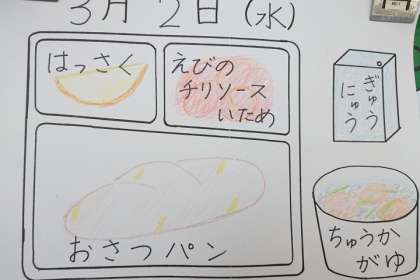 3月 2日 (水)
はっさく
えびの
チリソース
いため
ぎゅう
にゅう
おさつパン
ちゅうか
がゆ